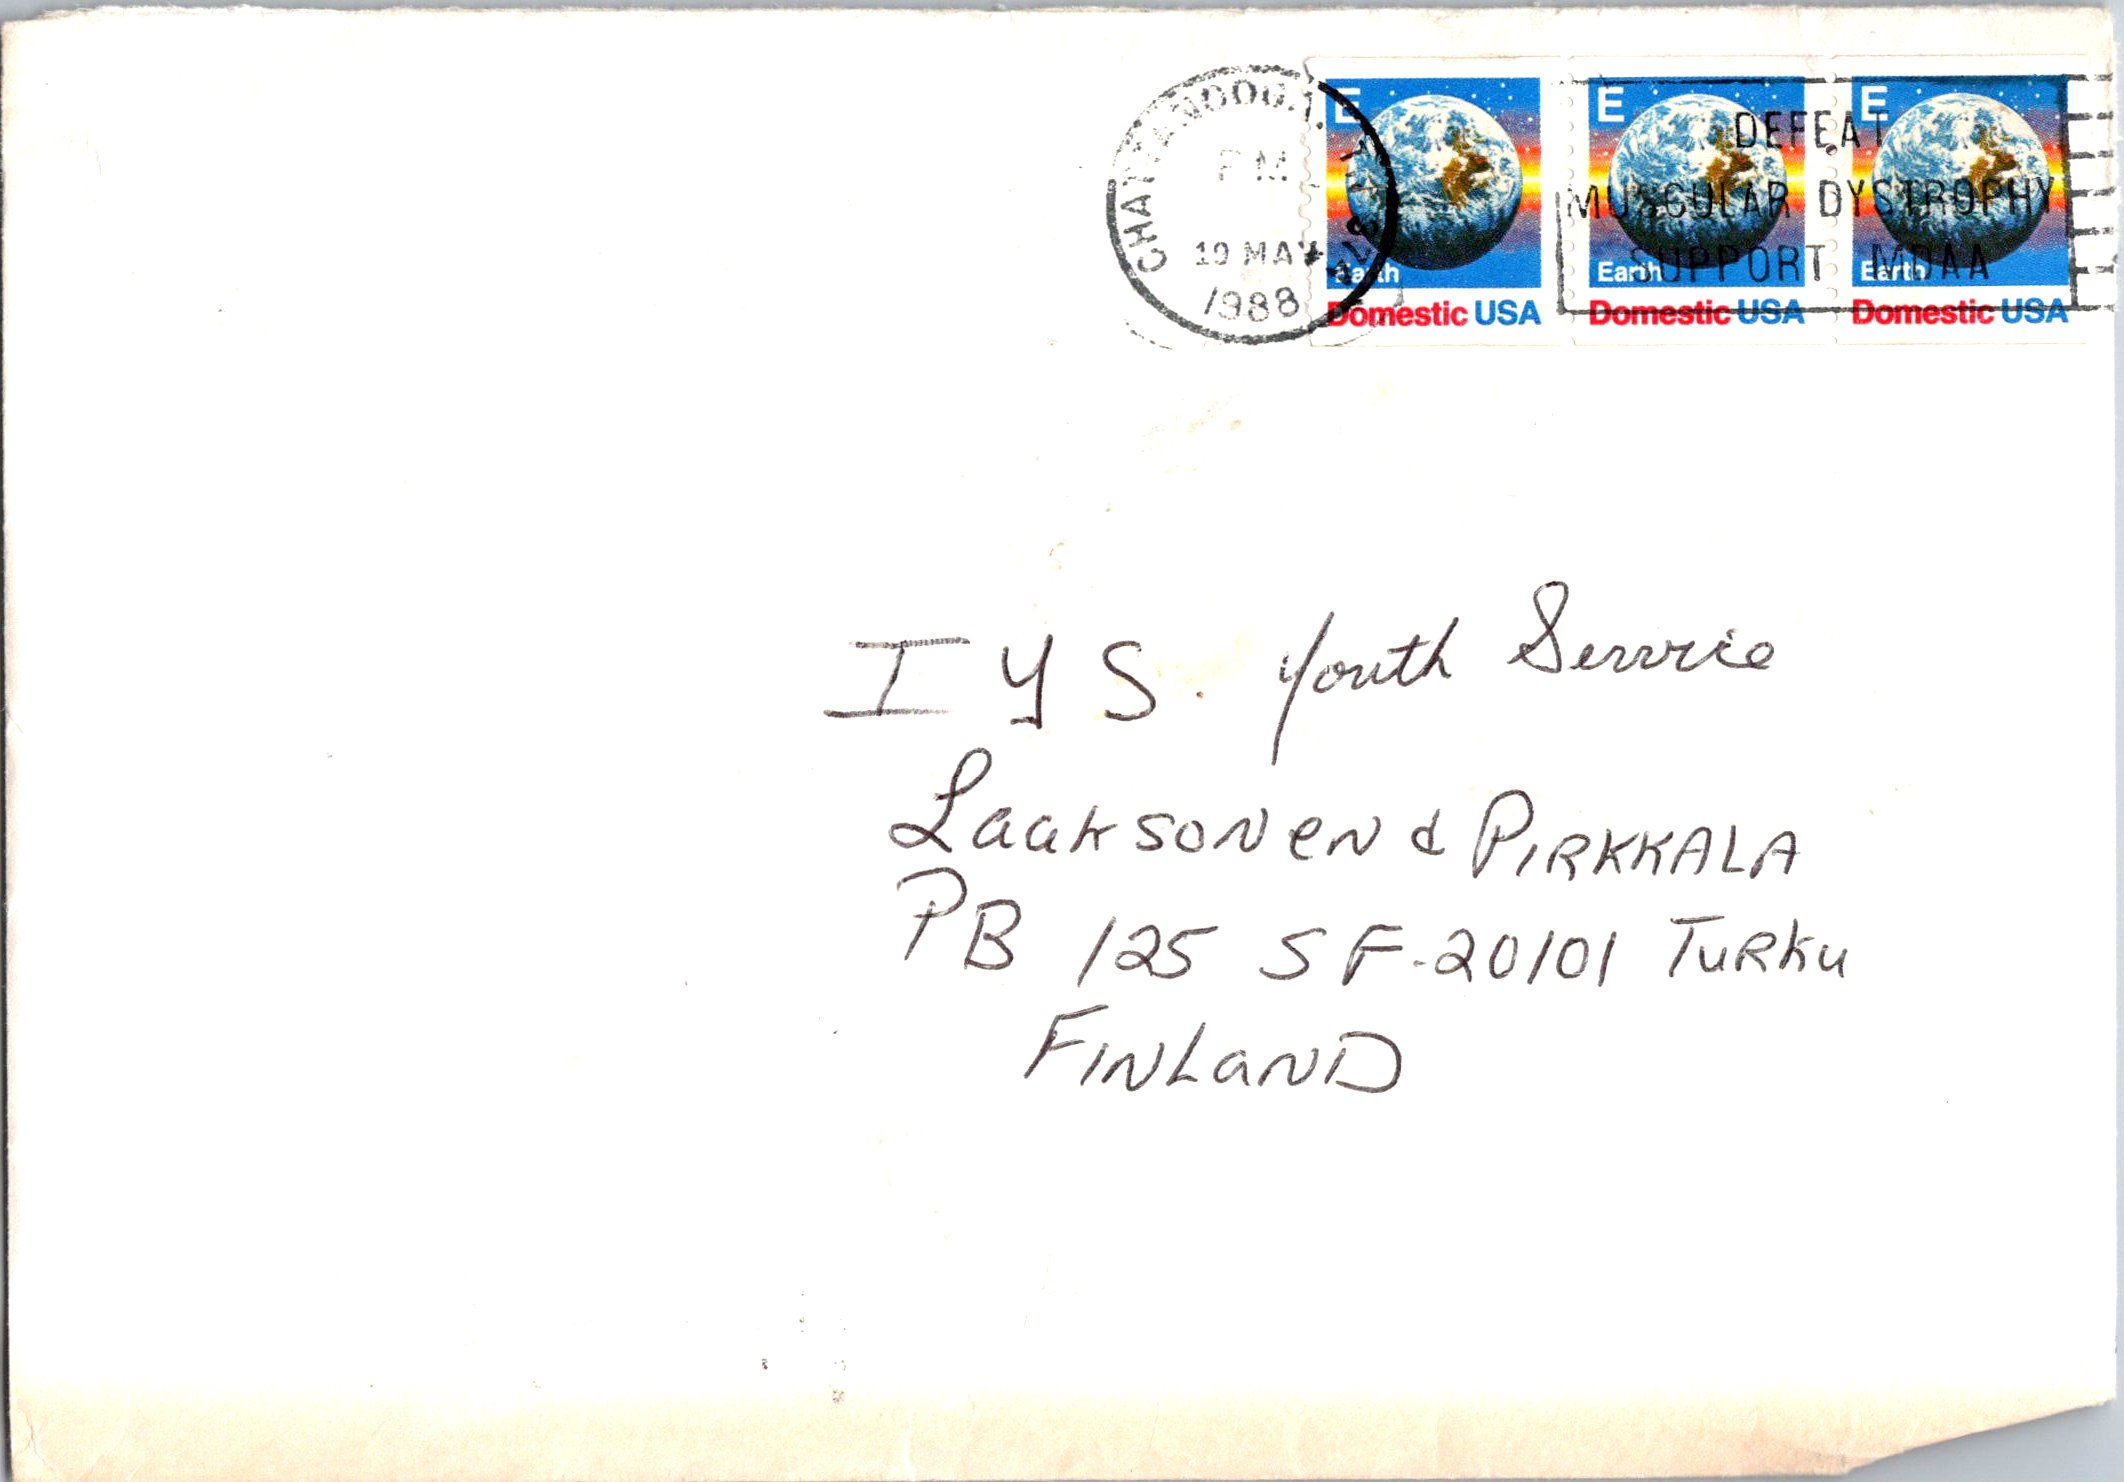 CHATTANOOGA, TN 374
PM
19 MAY
1988
E
Earth
Domestic USA
E
Earth
Domestic USA
E
Earth
Domestic USA
DEFEAT
MUSCULAR DYSTROPHY
SUPPORT MDAA
I Y S. Youth Service
Laaksonen & PIRKKALA
PB 125 SF-20101 TURKU
FINLAND